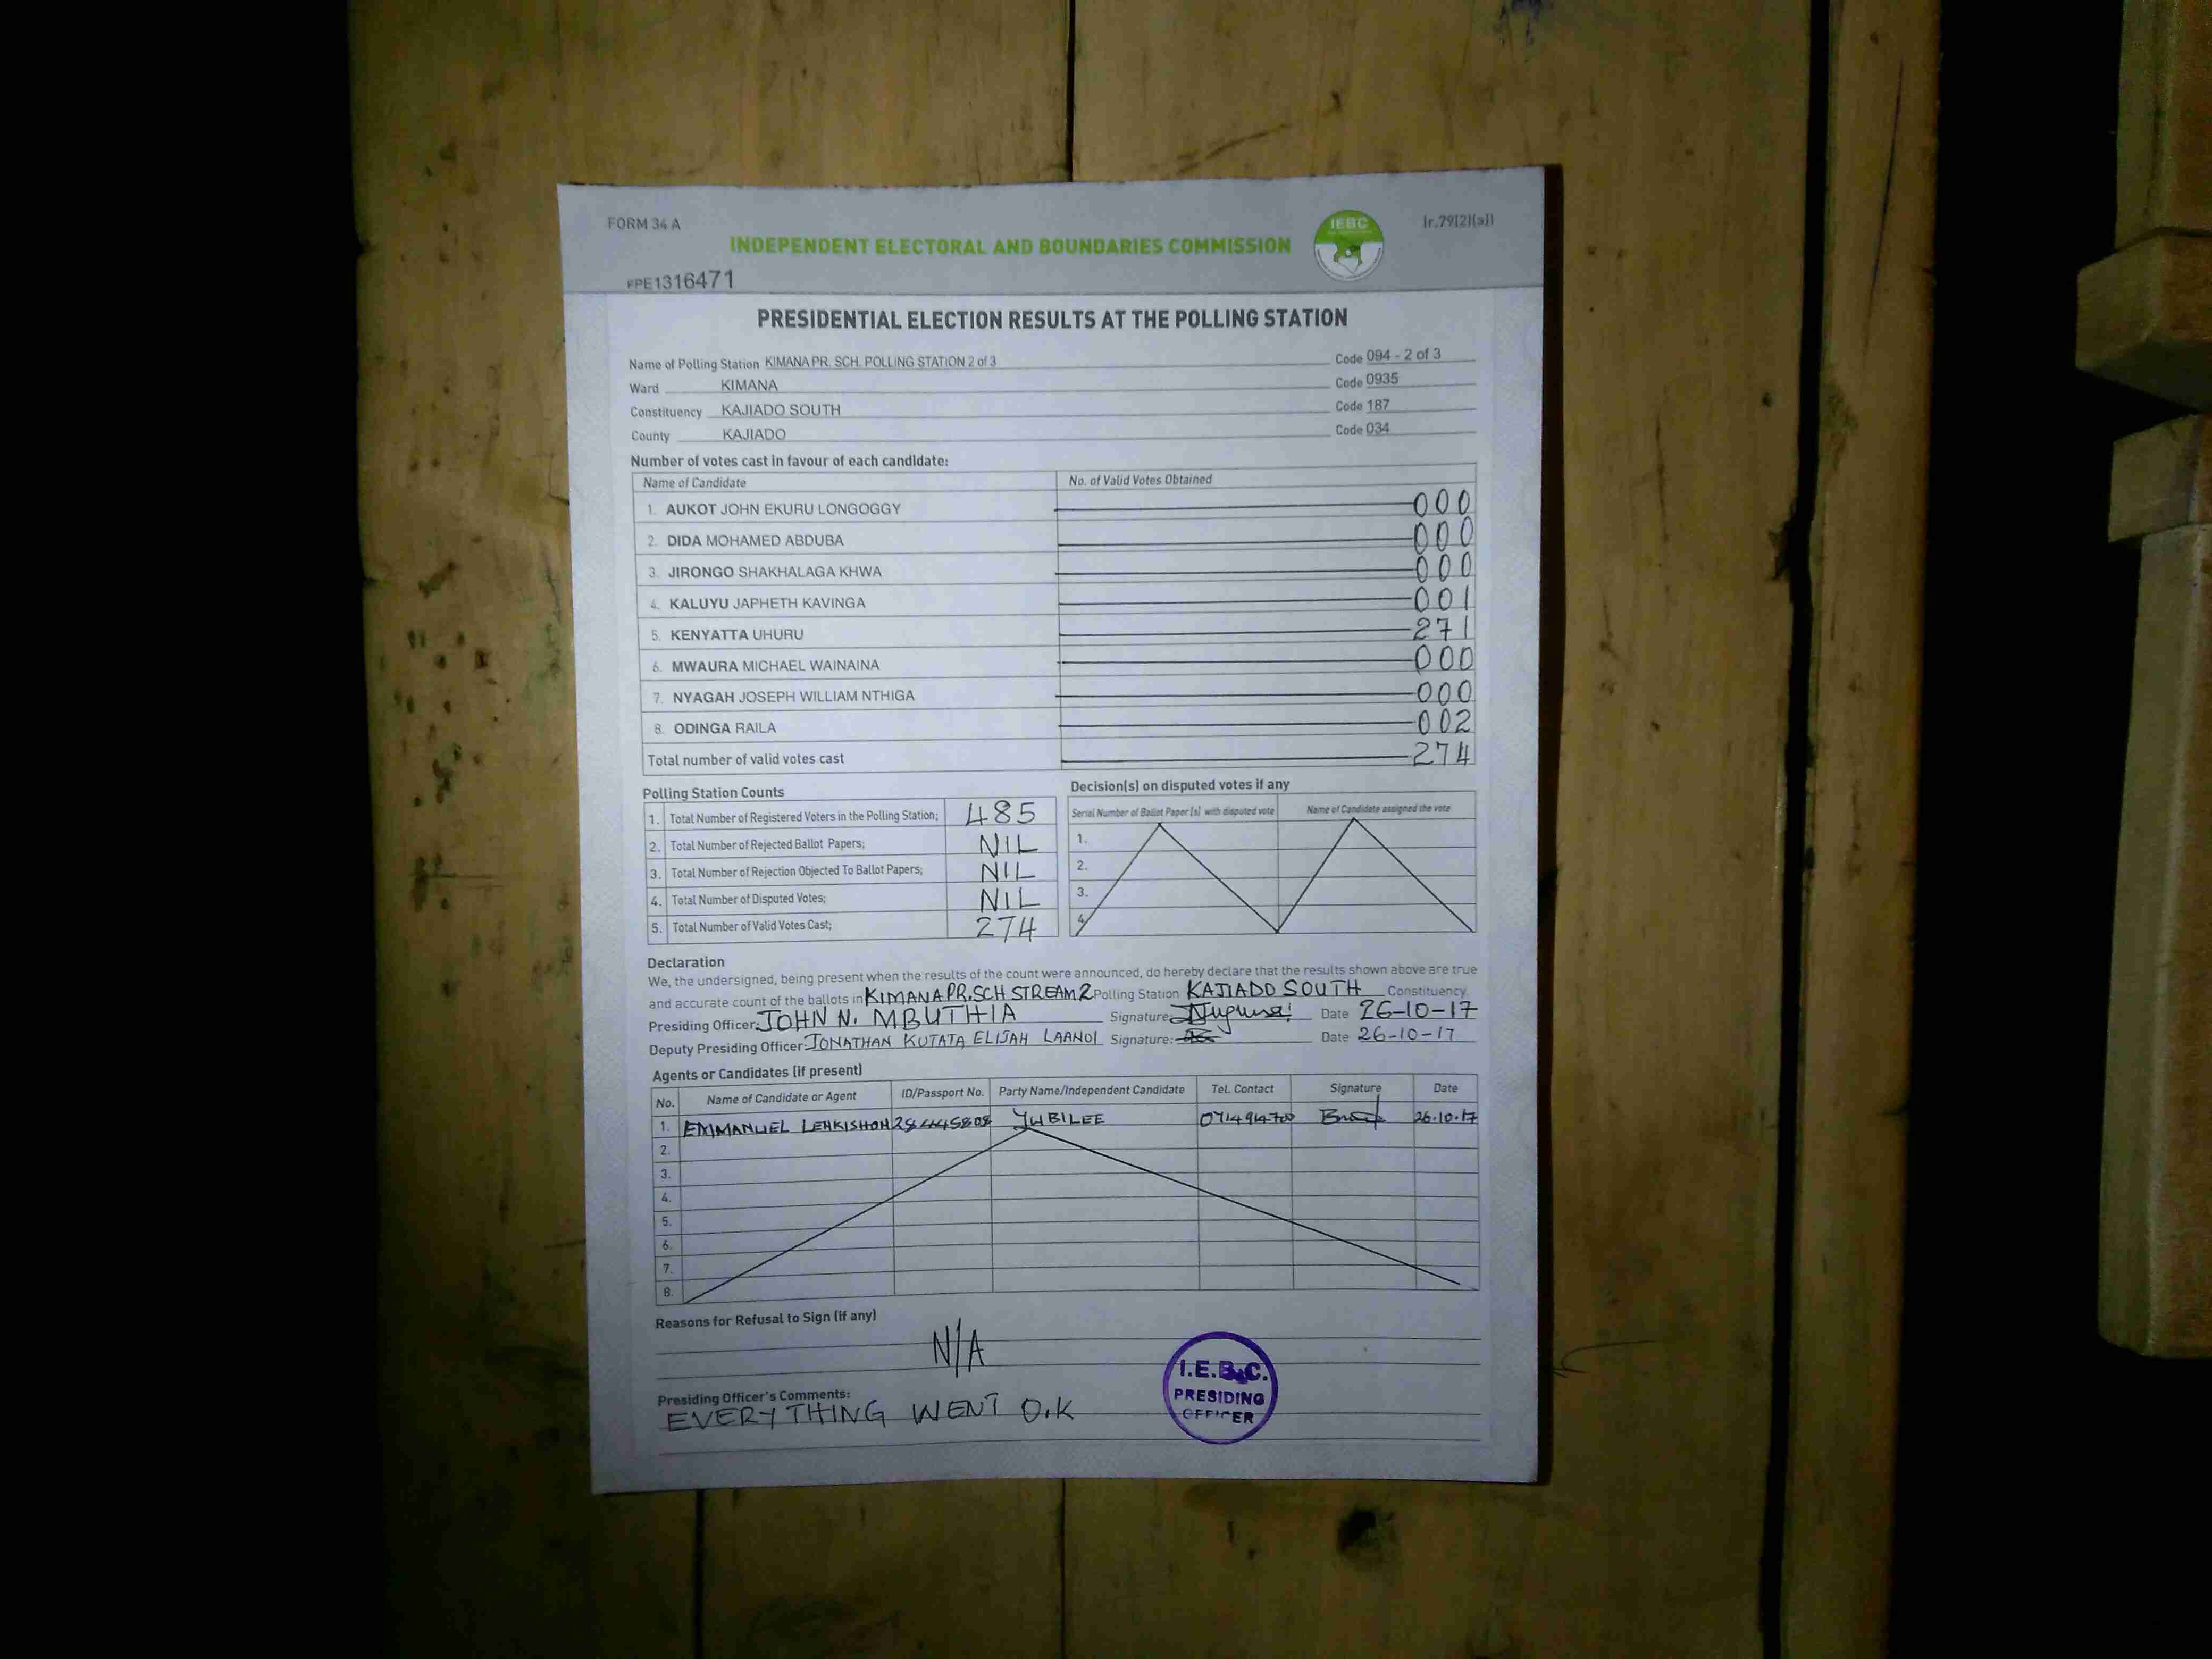 FORM 34 A
(r.79(2)(a))
INDEPENDENT ELECTORAL AND BOUNDARIES COMMISSION
IEBC
PPE1316471
PRESIDENTIAL ELECTION RESULTS AT THE POLLING STATION
Name of Polling Station KIMANA PR. SCH. POLLING STATION 2 of 3 Code 094 - 2 of 3
Ward KIMANA Code 0935
Constituency KAJIADO SOUTH Code 187
County KAJIADO Code 034
Number of votes cast in favour of each candidate:
Name of Candidate No. of Valid Votes Obtained
1. AUKOT JOHN EKURU LONGOGGY 000
2. DIDA MOHAMED ABDUBA 000
3. JIRONGO SHAKHALAGA KHWA 000
4. KALUYU JAPHETH KAVINGA 001
5. KENYATTA UHURU 271
6. MWAURA MICHAEL WAINAINA 000
7. NYAGAH JOSEPH WILLIAM NTHIGA 000
8. ODINGA RAILA 002
Total number of valid votes cast 274
Polling Station Counts
1. Total Number of Registered Voters in the Polling Station; 485
2. Total Number of Rejected Ballot Papers; NIL
3. Total Number of Rejection Objected To Ballot Papers; NIL
4. Total Number of Disputed Votes; NIL
5. Total Number of Valid Votes Cast; 274
Decision(s) on disputed votes if any
Serial Number of Ballot Paper (s) with disputed vote Name of Candidate assigned the vote
1.
2.
3.
4.
Declaration
We, the undersigned, being present when the results of the count were announced, do hereby declare that the results shown above are true
and accurate count of the ballots in KIMANA PR. SCH STREAM 2 Polling Station KAJIADO SOUTH Constituency.
Presiding Officer: JOHN N. MBUTHIA Signature: Date 26-10-17
Deputy Presiding Officer: JONATHAN KUTATA ELIJAH LAANOI Signature: Date 26-10-17
Agents or Candidates (if present)
No. Name of Candidate or Agent ID/Passport No. Party Name/Independent Candidate Tel. Contact Signature Date
1. EMMANUEL JUBILEE 26.10.17
2.
3.
4.
5.
6.
7.
8.
Reasons for Refusal to Sign (if any)
N/A
Presiding Officer's Comments:
EVERYTHING WENT O.K
I.E.B.C.
PRESIDING
OFFICER